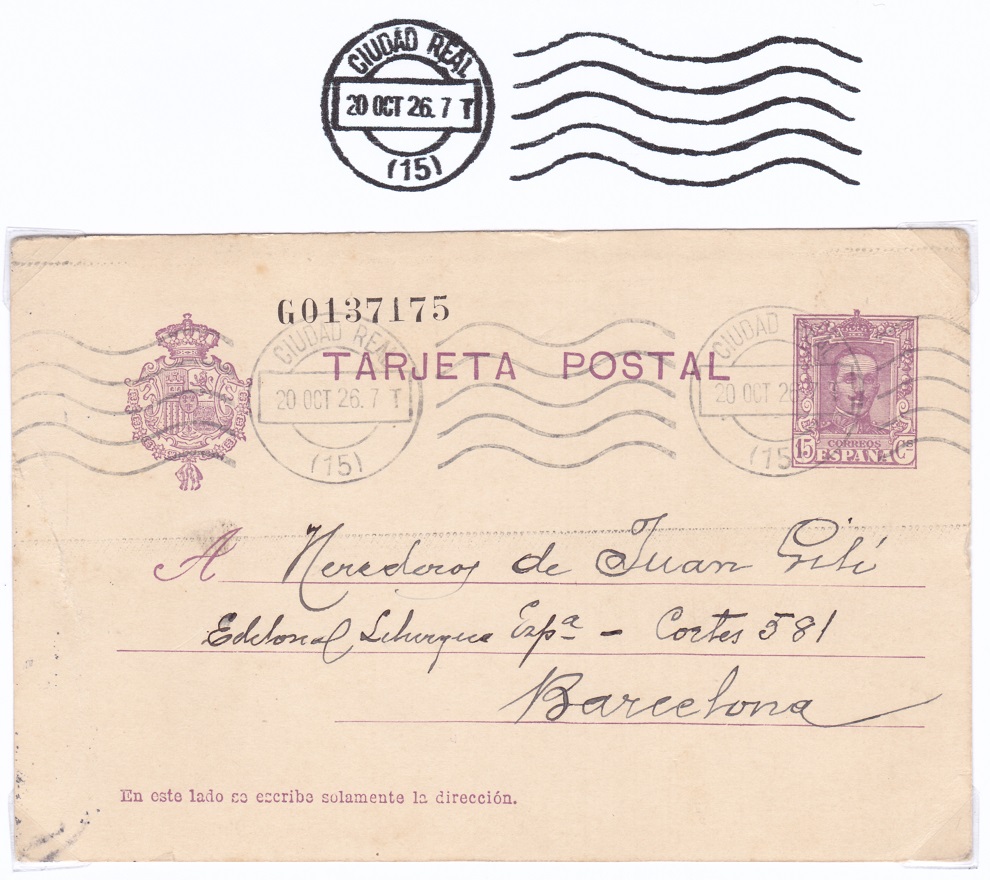 CIUDAD REAL
20 OCT 26. 7 T
(15)
G0137175
CIUDAD REAL
20 OCT 26. 7 T
(15)
TARJETA POSTAL
CIUDAD
20 OCT 26 7
(15
CORREOS
15 ESPAÑA Cs
A Herederos de Juan Gili
Editorial Liturgica Espª - Cortes 581
Barcelona
En este lado se escribe solamente la dirección.